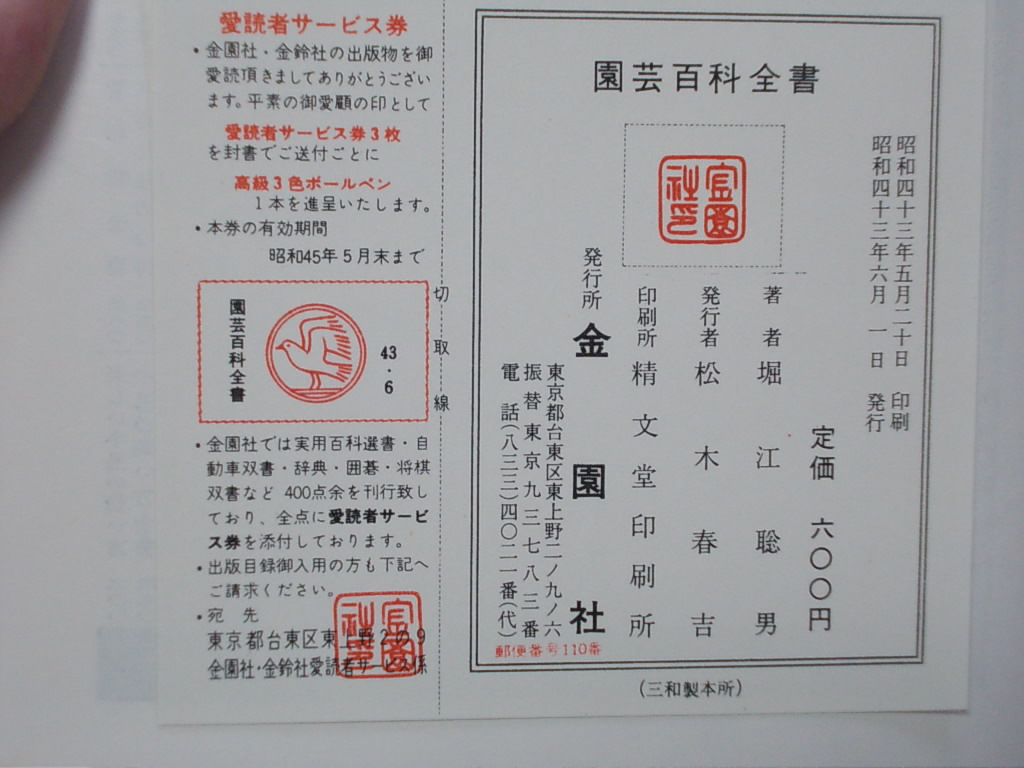 愛読者サービス券
・金園社・金鈴社の出版物を御
愛読頂きましてありがとうござい
ます。平素の御愛顧の印として
愛読者サービス券3枚
を封書でご送付ごとに
高級3色ボールペン
1本を進呈いたします。
・本券の有効期間
昭和45年5月末まで
園芸百科全書
43・6
・金園社では実用百科選書・自
動車双書・辞典・囲碁・将棋
双書など 400点余を刊行致し
ており、全点に愛読者サービ
ス券を添付しております。
・出版目録御入用の方も下記へ
ご請求ください。
・宛 先
東京都台東区東上野2の9
金園社・金鈴社愛読者サービス係
切取線
園芸百科全書
昭和四十三年五月二十日 印刷
昭和四十三年六月 一日 発行
定価 六〇〇円
著者 堀江聡男
発行者 松木春吉
印刷所 精文堂印刷所
発行所 金園社
東京都台東区東上野二ノ九ノ六
振替東京九三七八三番
電話(八三三)四〇二一番(代)
郵便番号110番
(三和製本所)